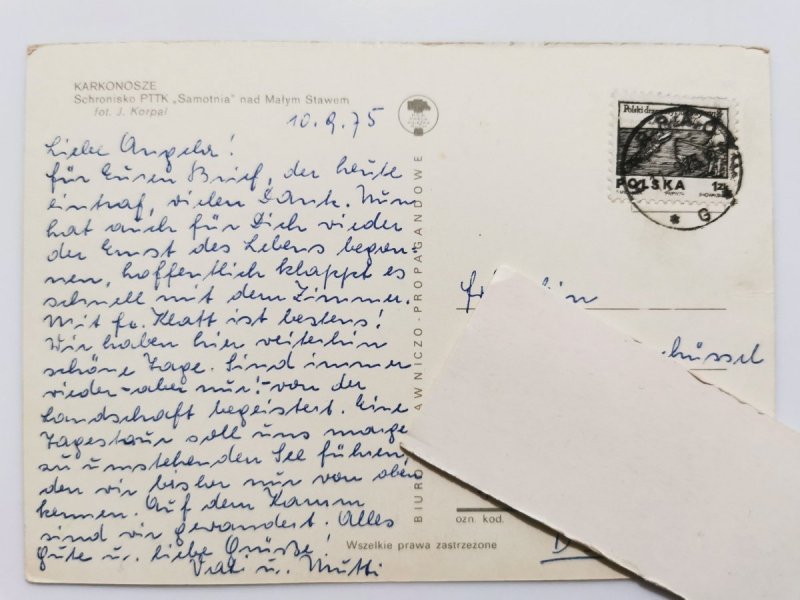 KARKONOSZE
Schronisko PTTK „Samotnia" nad Małym Stawem
fot. J. Korpal
10.9.75
Liebe Angela!
für Euren Brief, der heute
eintraf, vielen Dank. Nun
hat auch für Dich wieder
der Ernst des Lebens begon-
nen, hoffentlich klappt es
schnell mit dem Zimmer.
Mit Fr. Klatt ist bestens!
Wir haben hier weiterhin
schöne Tage. Sind immer
wieder - aber nur! - von der
Landschaft begeistert. Eine
Tagestour soll uns morge
zu umstehenden See führen,
den wir bisher nur von oben
kennen. Auf dem Kamm
sind wir gewandert. Alles
gute u. liebe Grüße!
Vati u. Mutti
BIURO AWNICZO-PROPAGANDOWE
Wszelkie prawa zastrzeżone
ozn. kod.
POLSKA
1zł
G
hüssel